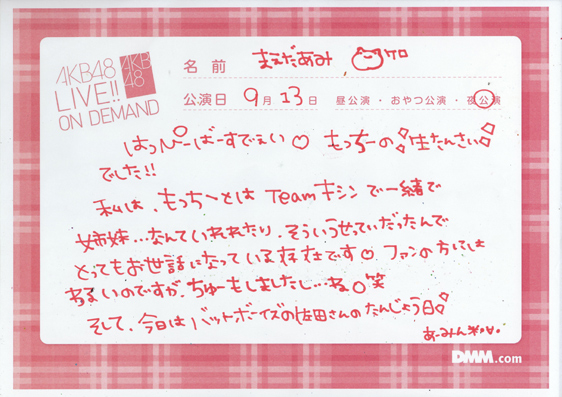 AKB48
LIVE!!
ON DEMAND
AKB
48
名前 まえだあみ ケロ
公演日 9月13日 昼公演・おやつ公演・夜公演
はっぴーばーすでぇい♡ もっちーの生たんさい
でした!!
私は、もっちーとは Teamキシンで一緒で
姉妹…なんていわれたり、そういうせっていだったんで
とってもお世話になっている存在です♡ ファンの方には
わるいのですが、ちゅーもしましたし…ね♡笑
そして、今日はバットボーイズの佐田さんのたんじょう日
あーみん
DMM.com